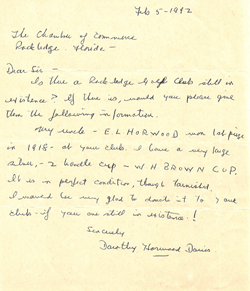 Feb 5 - 1992
The Chamber of Commerce
Rockledge. Florida -
Dear Sir -
Is there a Rockledge Golf Club still in
existence? If there is, would you please give
them the following information.
My uncle - E. L HORWOOD won 1st prize
in 1918 - at your club. I have a very large
silver, - 2 handle cup - W. H BROWN CUP.
It is in perfect condition, though tarnished.
I would be very glad to donate it to your
club - if you are still in existence!
Sincerely
Dorothy Horwood Davies